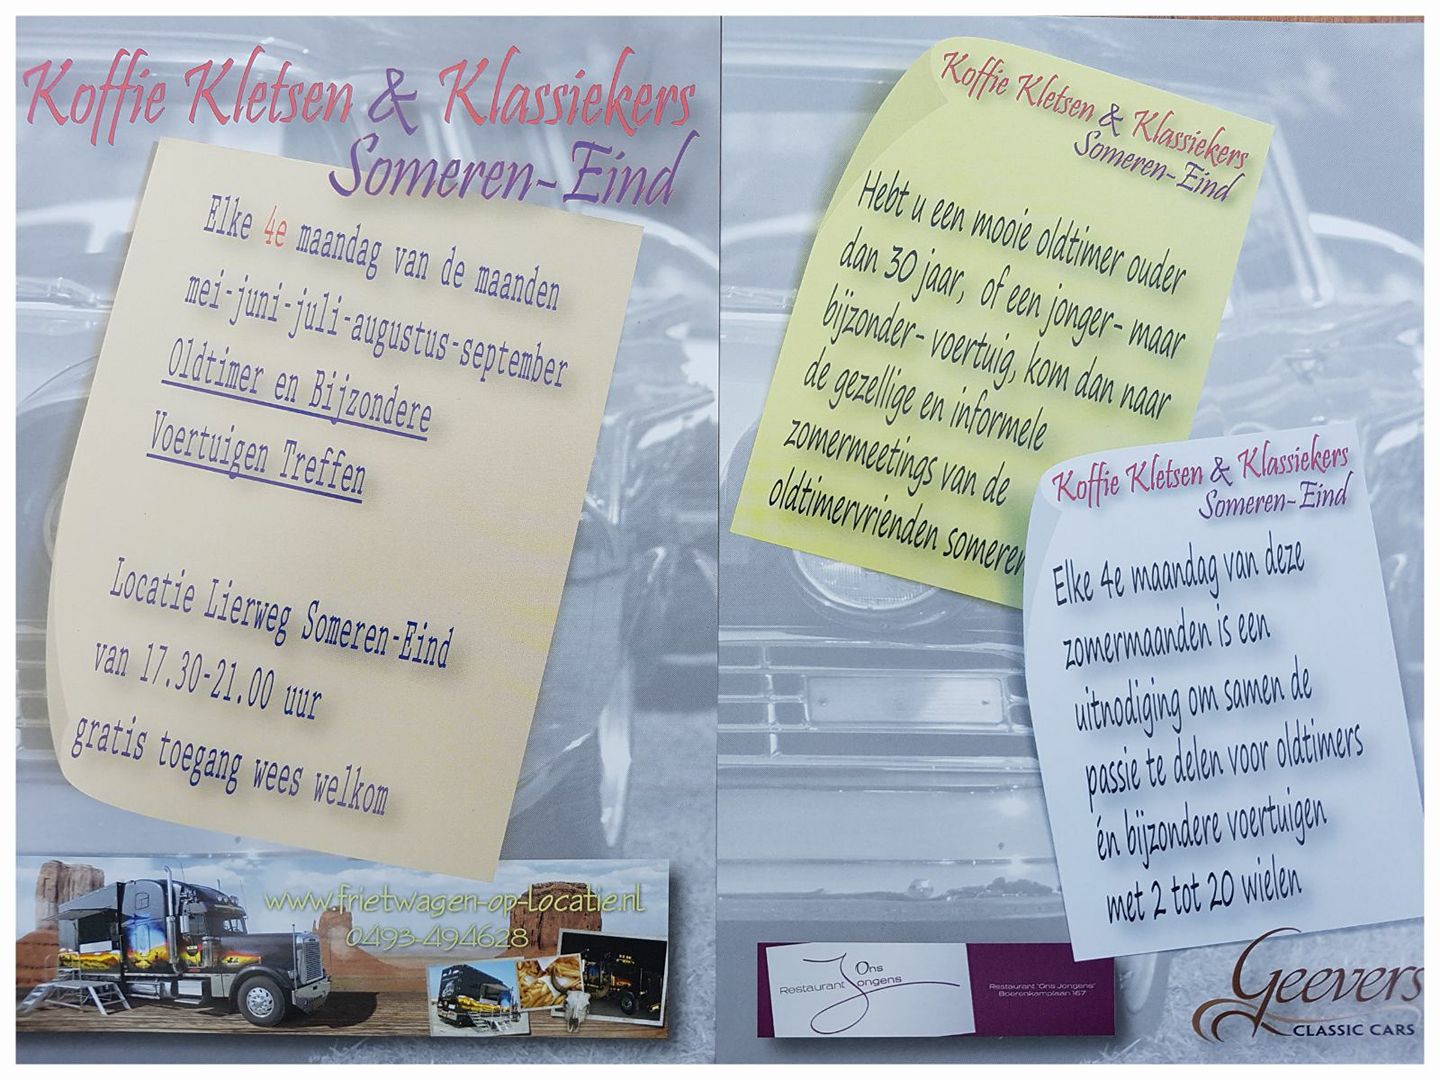 Koffie Kletsen & Klassiekers
Someren-Eind
Elke 4e maandag van de maanden
mei-juni-juli-augustus-september
Oldtimer en Bijzondere
Voertuigen Treffen
Locatie Lierweg Someren-Eind
van 17.30-21.00 uur
gratis toegang wees welkom
www.frietwagen-op-locatie.nl
0493-494628
Koffie Kletsen & Klassiekers
Someren-Eind
Hebt u een mooie oldtimer ouder
dan 30 jaar, of een jonger- maar
bijzonder- voertuig, kom dan naar
de gezellige en informele
zomermeetings van de
oldtimervrienden someren
Koffie Kletsen & Klassiekers
Someren-Eind
Elke 4e maandag van deze
zomermaanden is een
uitnodiging om samen de
passie te delen voor oldtimers
én bijzondere voertuigen
met 2 tot 20 wielen
Restaurant Ons Jongens
Restaurant "Ons Jongens"
Boerenkamplaan 167
Geevers
CLASSIC CARS